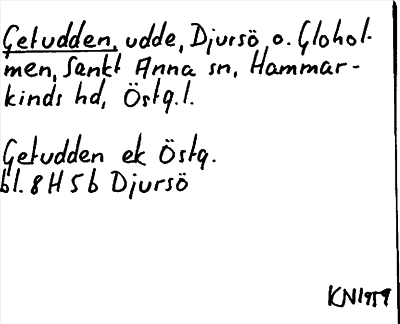 Getudden, udde, Djursö, o. Glohol-
men, Sankt Anna sn, Hammar-
kinds hd, Östg.l.
Getudden ek Östg.
bl. 8 H 5 b Djursö
KN 1959